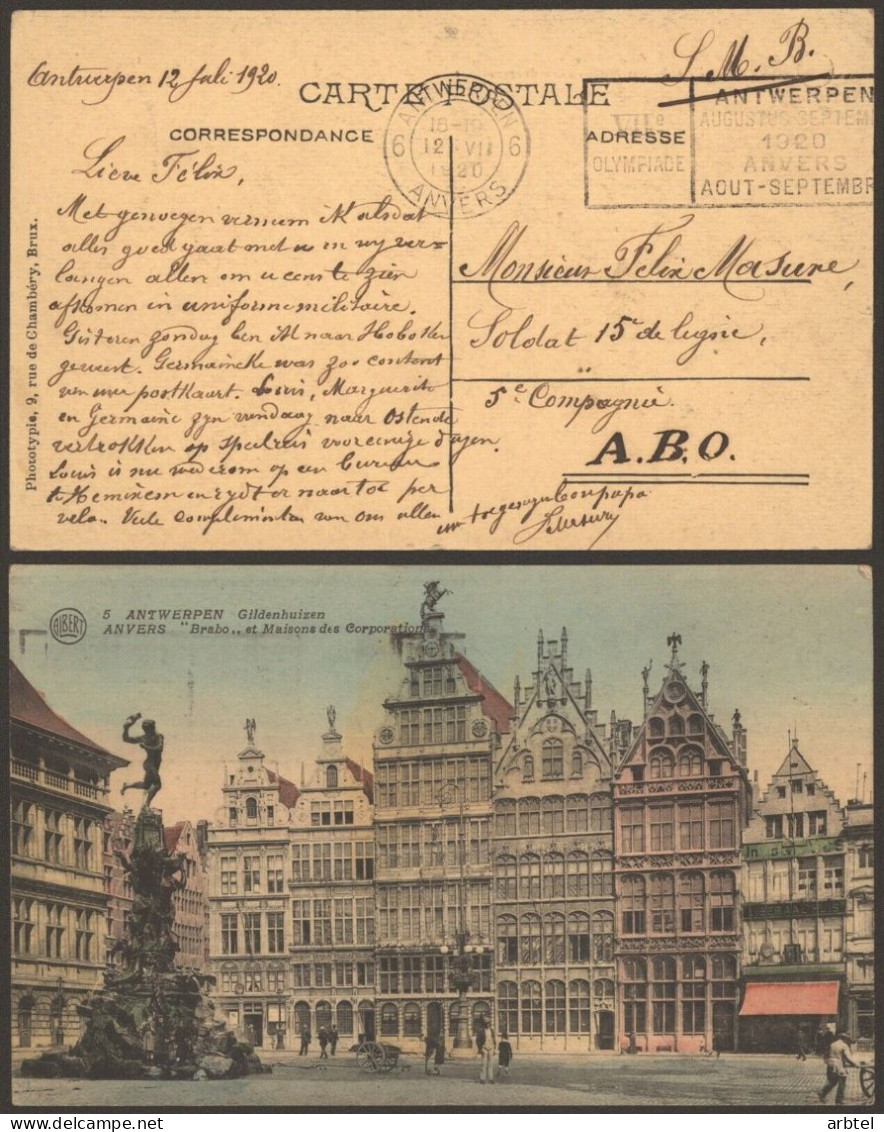 Antwerpen 12 Juli 1920.
S. M. B.
CARTE POSTALE
ANTWERPEN
18-19
6 12 VII 6
1920
ANVERS
VIIe
OLYMPIADE
ANTWERPEN
AUGUSTUS-SEPTEM
1920
ANVERS
AOUT-SEPTEMBR
CORRESPONDANCE
ADRESSE
Lieve Félix,
Met genoegen vernem ik alsdat
alles goed gaat met u en wy ver=
langen allen om u eens te zien
afkomen in uniforme militaire.
Gisteren zondag ben ik naar Hoboken
geweest. Germaineke was zoo content
van uwe postkaart. Louis, Marguerite
en Germaine zyn vandaag naar Ostende
vertrokken op speelreis voor eenige dagen.
Louis is nu wederom op een bureau
te Hemixem en rydt er naar toe per
velo. Vele complimenten van ons allen
uw toegenegen bonpapa
Monsieur Felix Masure,
Soldat 15e de ligne,
5e Compagnie.
A.B.O.
Phototypie, 9, rue de Chambéry, Brux.
ALBERT
5 ANTWERPEN Gildenhuizen
ANVERS "Brabo,, et Maisons des Corporations
arbtel